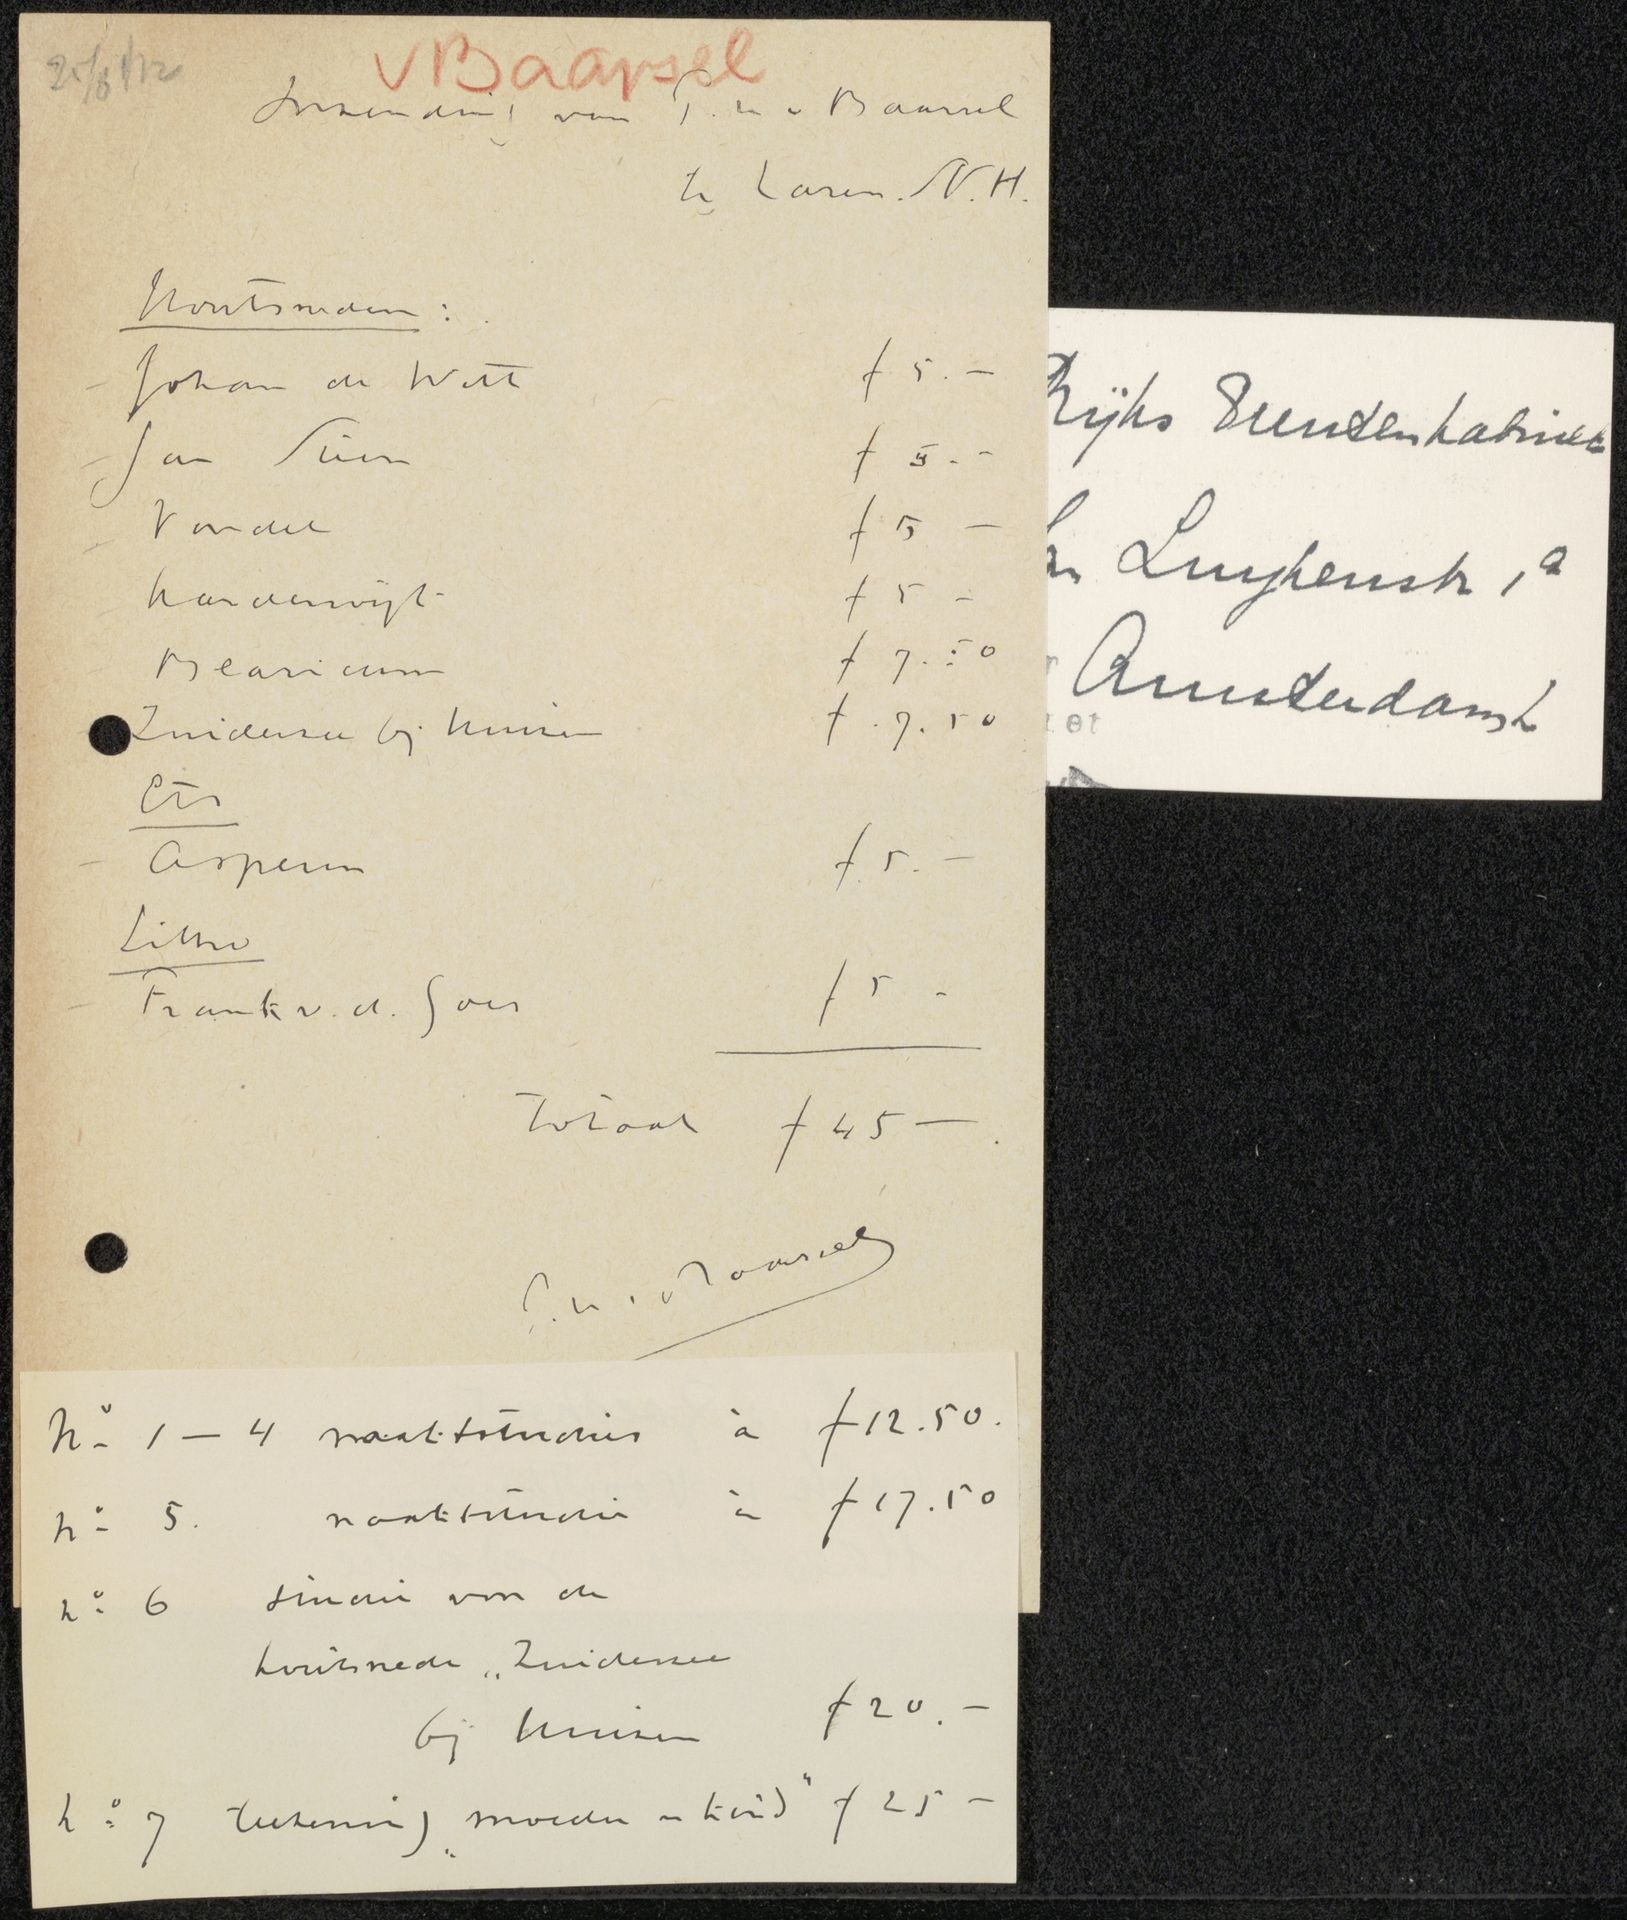 v Baarsel
Inzending van P. H. v Baarsel
te Laren. N.H.
Houtsneden :
- Johan de Witt f 5.-
- Jan Steen f 5.-
- Vondel f 5 -
- Harderwijk f 5 -
- Blaricum f 7.50
Zuiderzee bij Huizen f 7.50
Ets
- Asperen f 5.-
Litho
- Frank v. d. Goes f 5 -
Totaal f 45 -
v Baarsel
No 1 - 4 naaktstudies à f 12.50.
No 5. naaktstudie à f 17.50
No 6 studie voor de
houtsnede „Zuiderzee
bij Huizen f 20.-
No 7 teekening „moeder en kind" f 25 -
Rijks Prentenkabinet
Jan Luykenstr 1a
Amsterdam